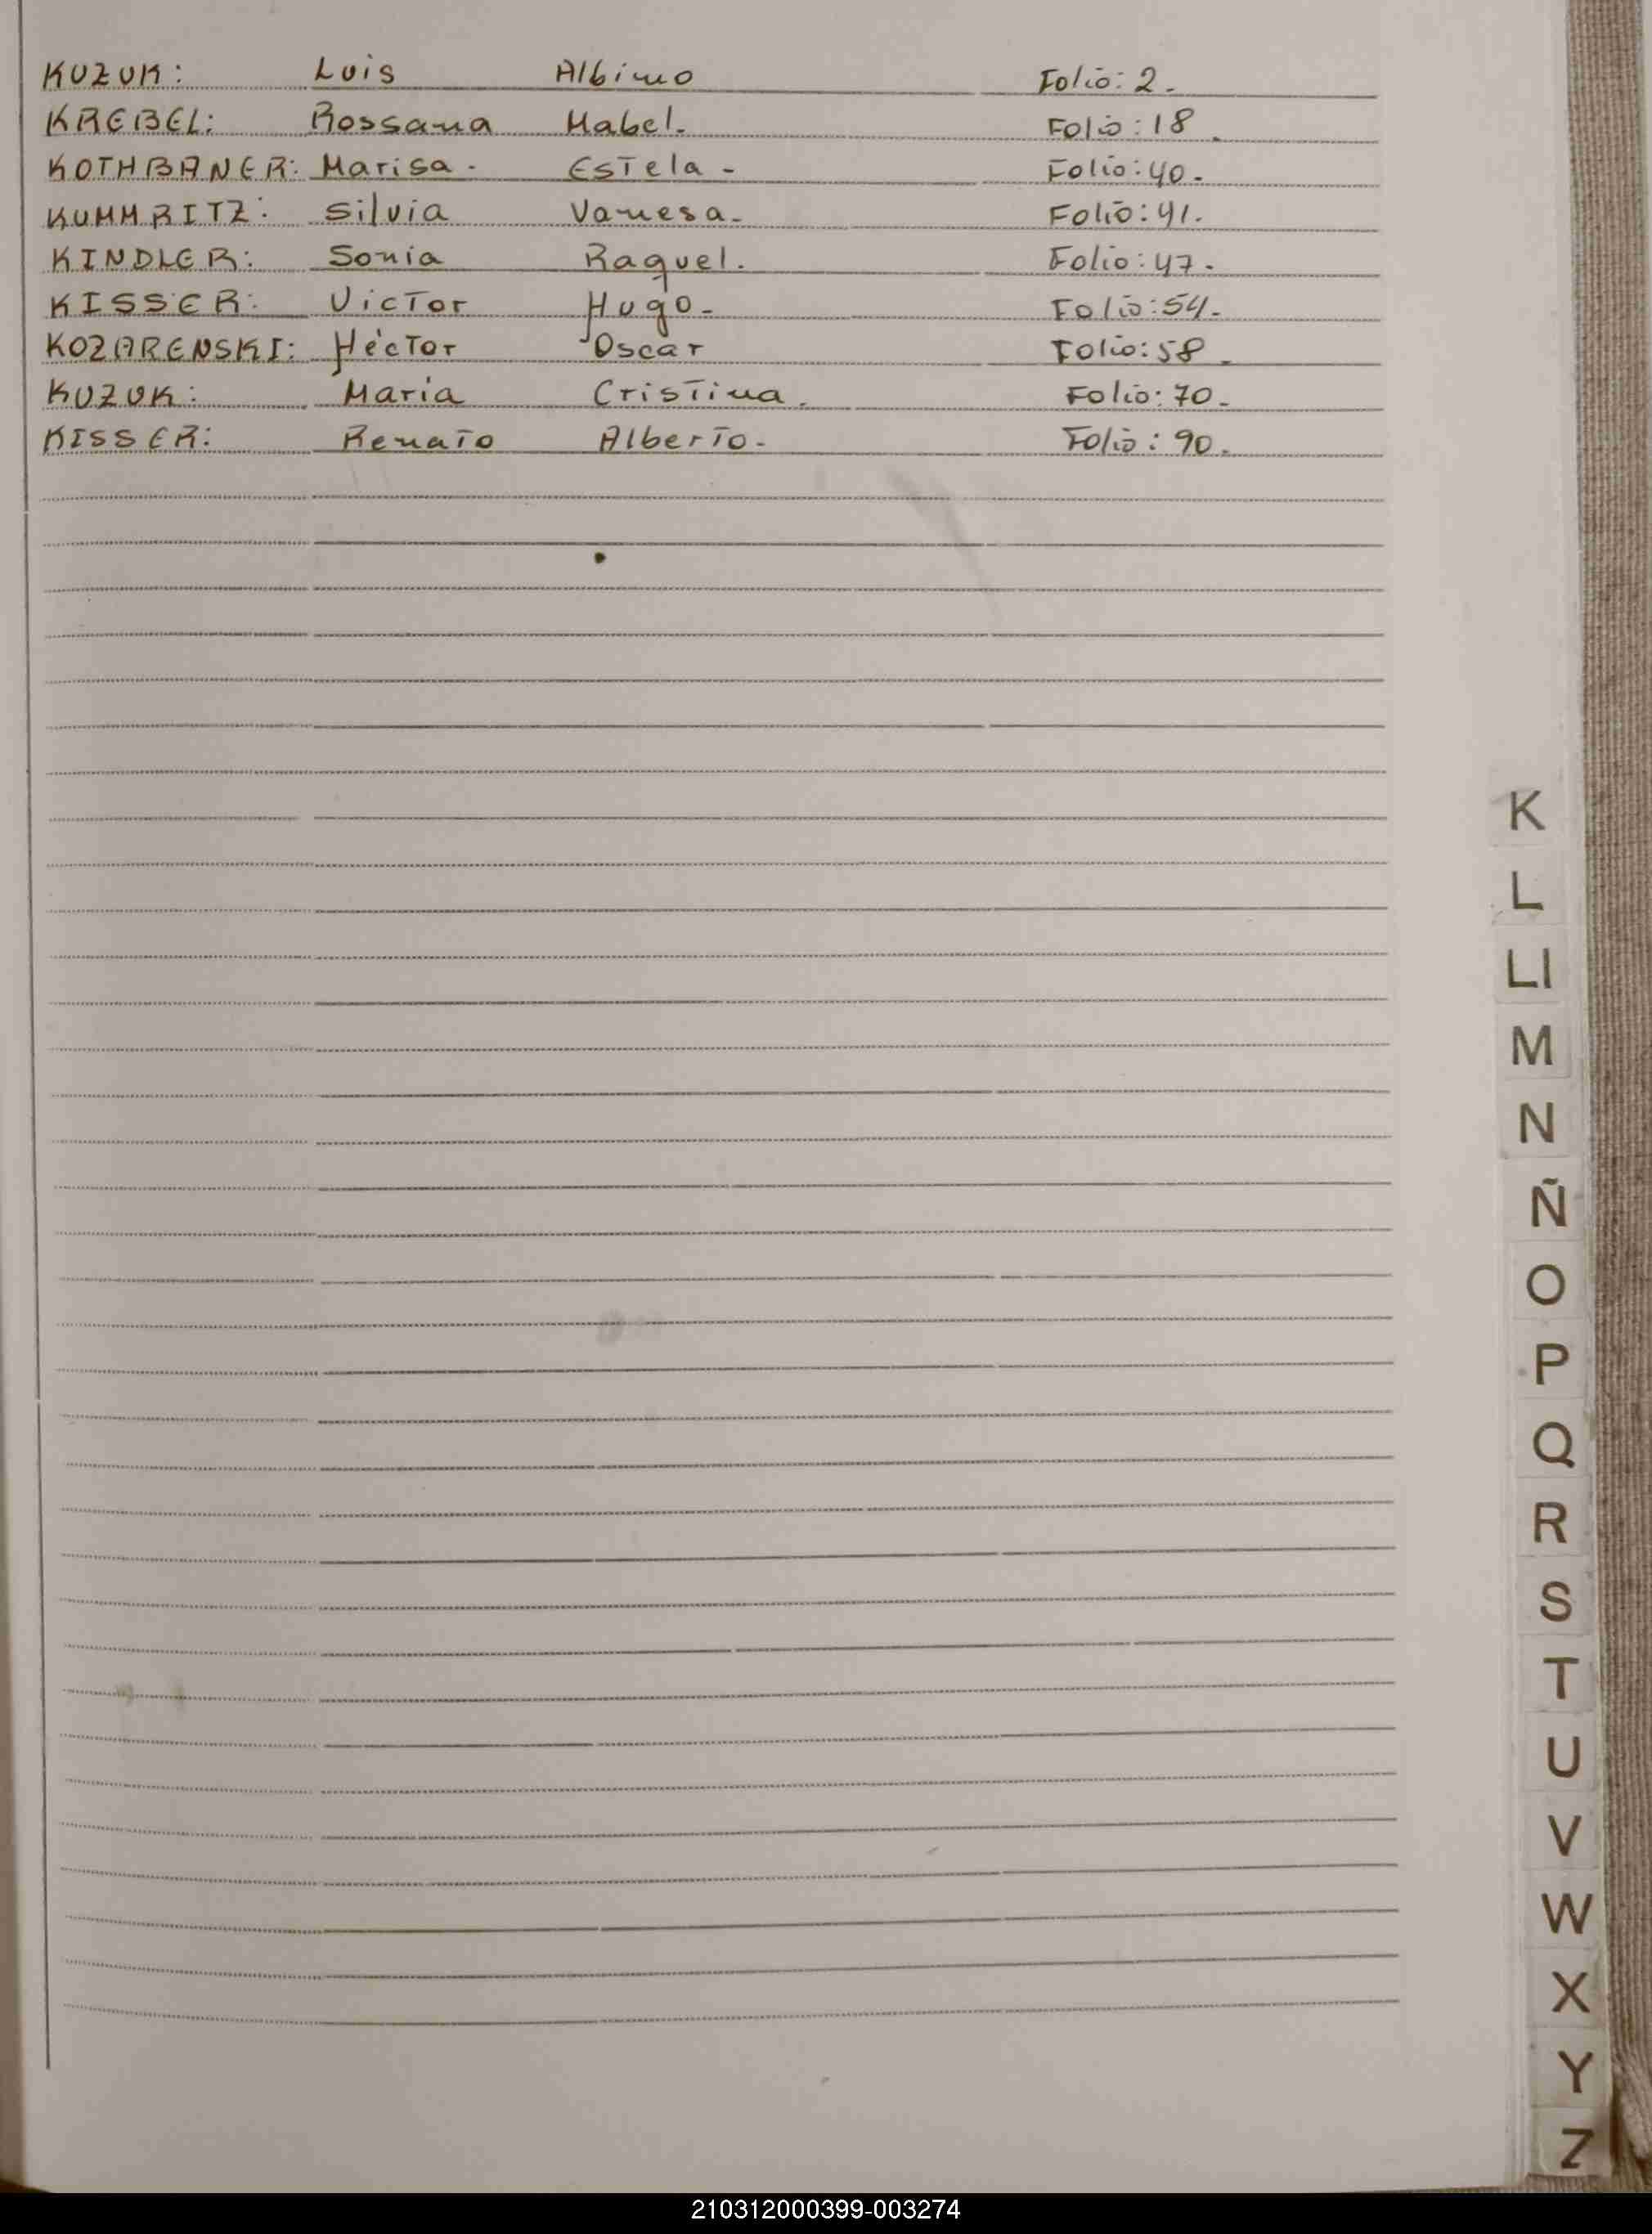 KUZUK: Luis Albino Folio: 2.
KREBEL: Rossana Mabel. Folio: 18.
KOTHBANER: Marisa - Estela - Folio: 40.
KUMMRITZ: Silvia Vanesa. Folio: 41.
KINDLER: Sonia Raquel. Folio: 47.
KISSER: Victor Hugo. Folio: 54.
KOZARENSKI: Héctor Oscar Folio: 58.
KUZUK: Maria Cristina. Folio: 70.
KISSER: Renato Alberto. Folio: 90.
K
L
Ll
M
N
Ñ
O
P
Q
R
S
T
U
V
W
X
Y
Z
210312000399-003274